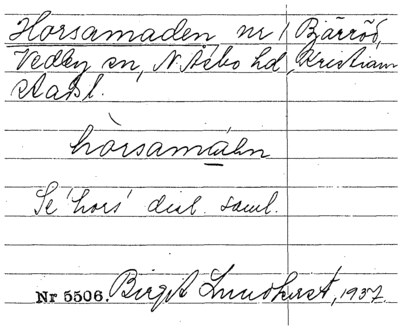 Horsamaden, nr 1 Bjärröd,
Vedby sn, N. Åsbo hd, Kristian-
stads l.
hòrsamáɛn
Se 'hors' dial. saml.
Nr 5506. Birgit Lundkvist, 1937.